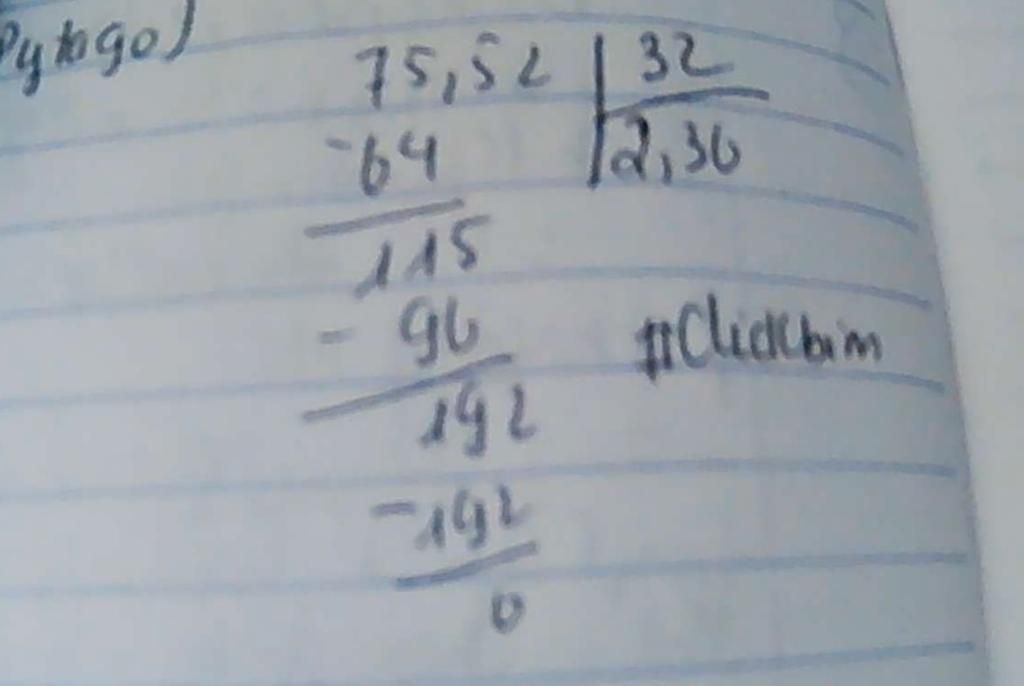 Pytago)
75,52 32
-64 2,36
115
- 96
192
-192
0
#Clickbim